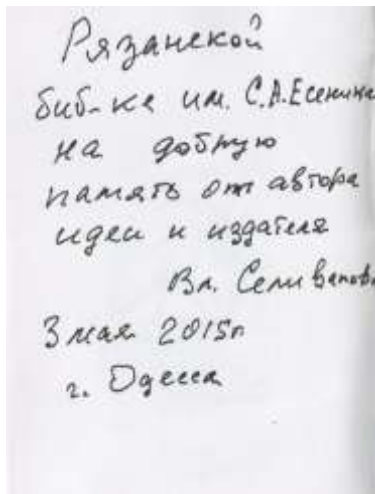 Рязанской
биб-ке им. С.А.Есенина
на добрую
память от автора
идеи и издателя
Вл. Селиванов
3 мая 2015г
г. Одесса